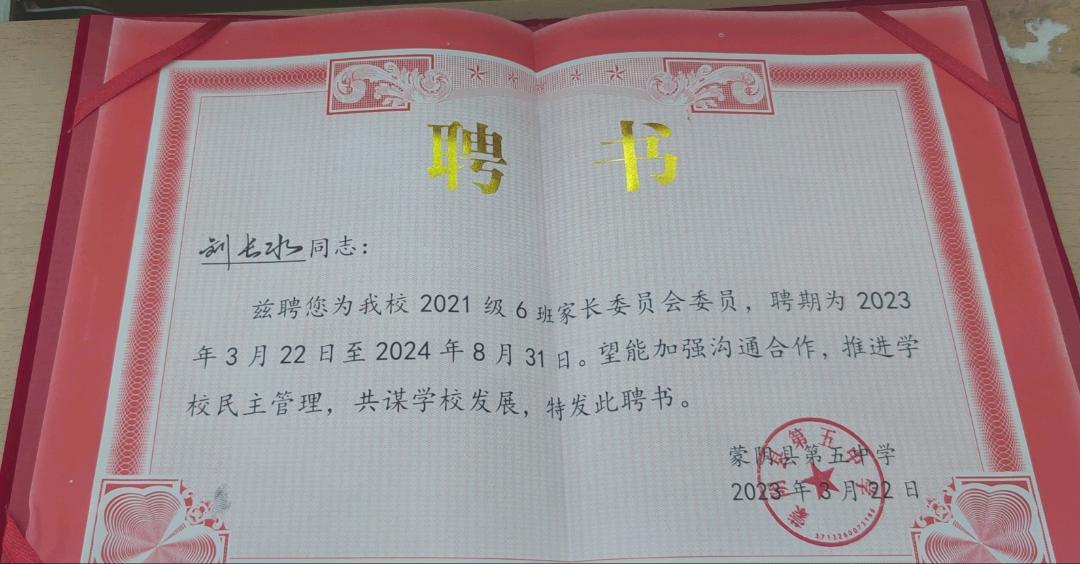 聘 书
刘长水同志：
兹聘您为我校 2021 级 6 班家长委员会委员，聘期为 2023
年 3 月 22 日至 2024 年 8 月 31 日。望能加强沟通合作，推进学
校民主管理，共谋学校发展，特发此聘书。
蒙阴县第五中学
2023 年 3 月 22 日